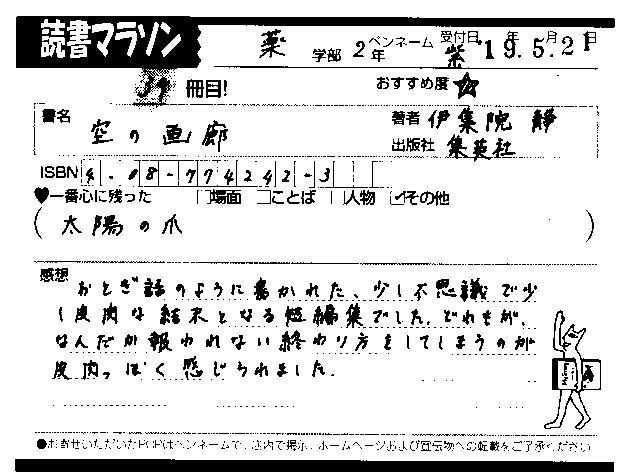 読書マラソン
薬 学部 2年 ペンネーム 紫 受付日 '19年5月21日
37冊目! おすすめ度 ☆
書名 空の画廊 著者 伊集院 静
出版社 集英社
ISBN 4-08-774242-3
♥一番心に残った □場面 □ことば □人物 ☑その他
(太陽の爪)
感想 おとぎ話のように書かれた、少し不思議で少
し皮肉な結末となる短編集でした。どれもが、
なんだか報われない終わり方をしてしまうのが
皮肉っぽく感じられました。
●お寄せいただいたPOPはペンネームで、店内で掲示、ホームページおよび宣伝物への転載をご了承ください